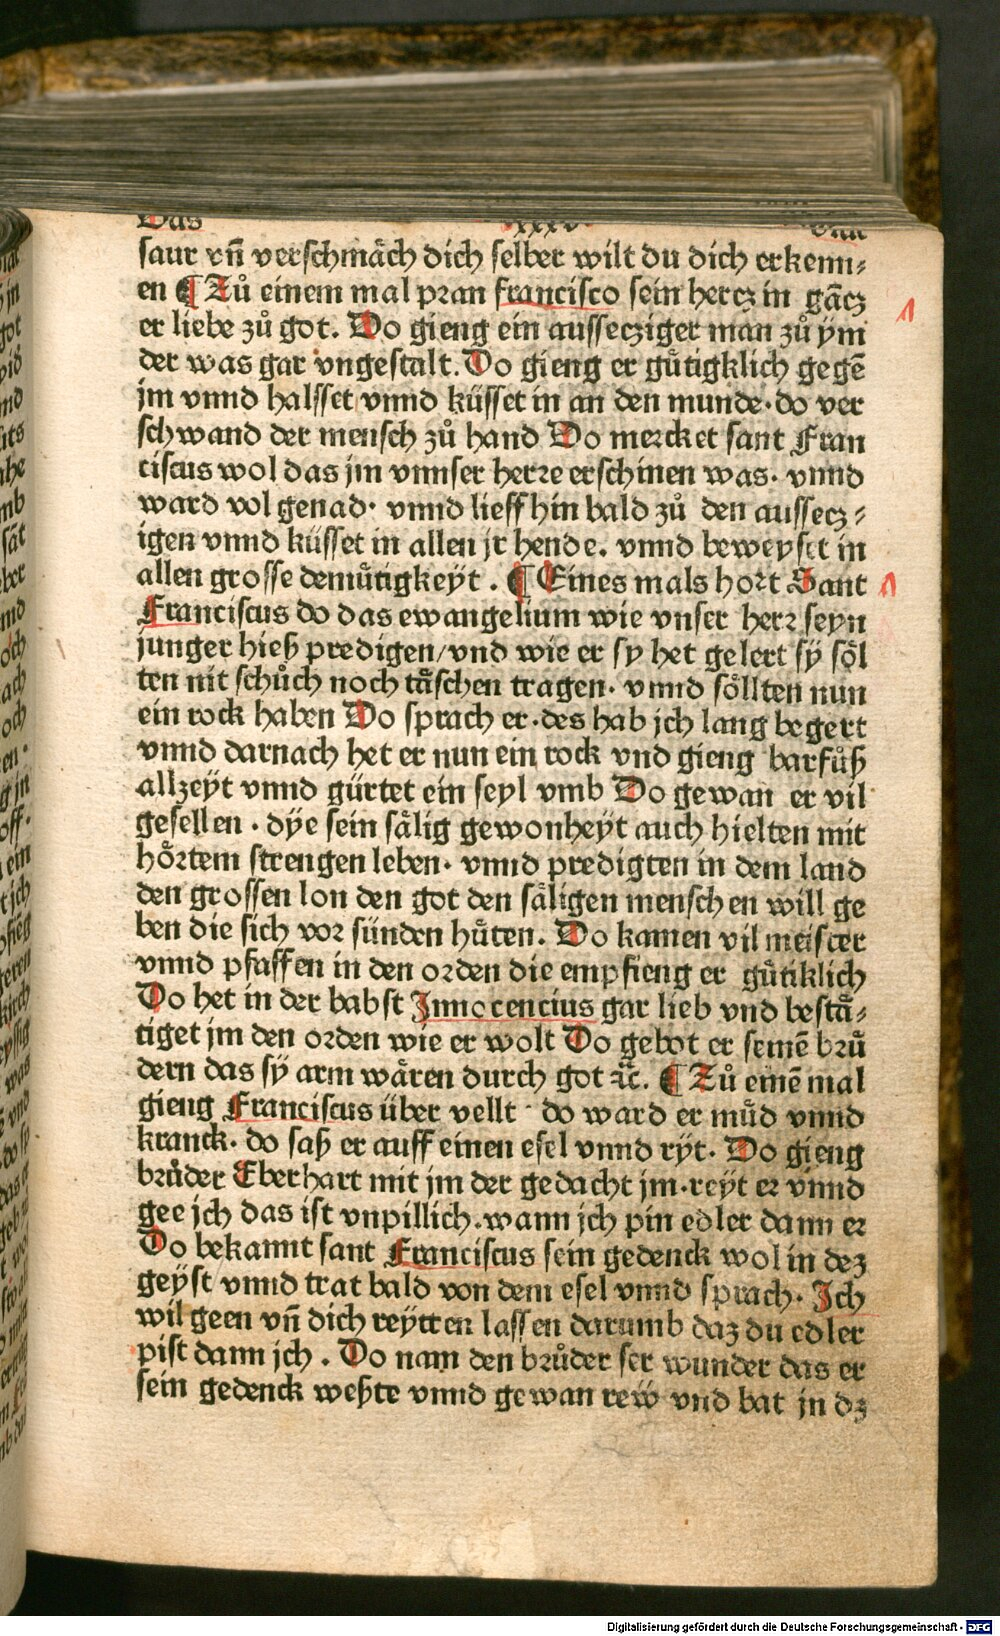 Das xxxv
saur vñ verschmäch dich selber wilt du dich erkenn⸗
en ¶ Zů einem mal pran francisco sein hercz in gãcz
er liebe zů got. Do gieng ein aussecziger man zů ym
der was gar vngestalt. Do gieng er gütigklich gegẽ
jm vnnd halsset vnnd küsset in an den munde· do ver
schwand der mensch zů hand Do mercket sant Fran
ciscus wol das jm vnnser herre erschinen was· vnnd
ward vol genad· vnnd lieff hin bald zů den aussecz⸗
igen vnnd küsset in allen jr hende. vnnd beweyset in
allen grosse demütigkeyt . ¶ Eines mals hort Sant
Franciscus do das ewangelium wie vnser herr seyn
junger hieß predigen/vnd wie er sy het gelert sÿ söl
ten nit schůch noch täschen tragen· vnnd söllten nun
ein rock haben Do sprach er·des hab jch lang begert
vnnd darnach het er nun ein rock vnd gieng barfůß
allzeÿt vnnd gürtet ein seyl vmb Do gewan er vil
gesellen · dÿe sein sälig gewonheÿt auch hielten mit
hörtem strengen leben· vnnd predigten in dem land
den grossen lon den got den säligen menschen will ge
ben die sich vor sünden hüten. Do kamen vil meister
vnnd pfaffen in den orden die empfieng er gütiklich
Do het in der babst Jnnocencius gar lieb vnd bestä⸗
tiget jm den orden wie er wolt Do gebot er seinẽ brü
dern das sÿ arm wären durch got ꝛc̃. ¶ Zů einẽ mal
gieng Franciscus über vellt · do ward er müd vnnd
kranck· do saß er auff einen esel vnnd rÿt· Do gieng
brůder Eberhart mit jm der gedacht jm·reÿt er vnnd
gee jch das ist vnpillich.wann jch pin edler dann er
Do bekannt sant Franciscus sein gedenck wol in dez
geÿst vnnd trat bald von dem esel vnnd sprach· Jch
wil geen vñ dich reÿtten lassen darumb daz du edler
pist dann jch . Do nam den brůder ser wunder das er
sein gedenck weßte vnnd gewan rew̃ vnd bat jn dz